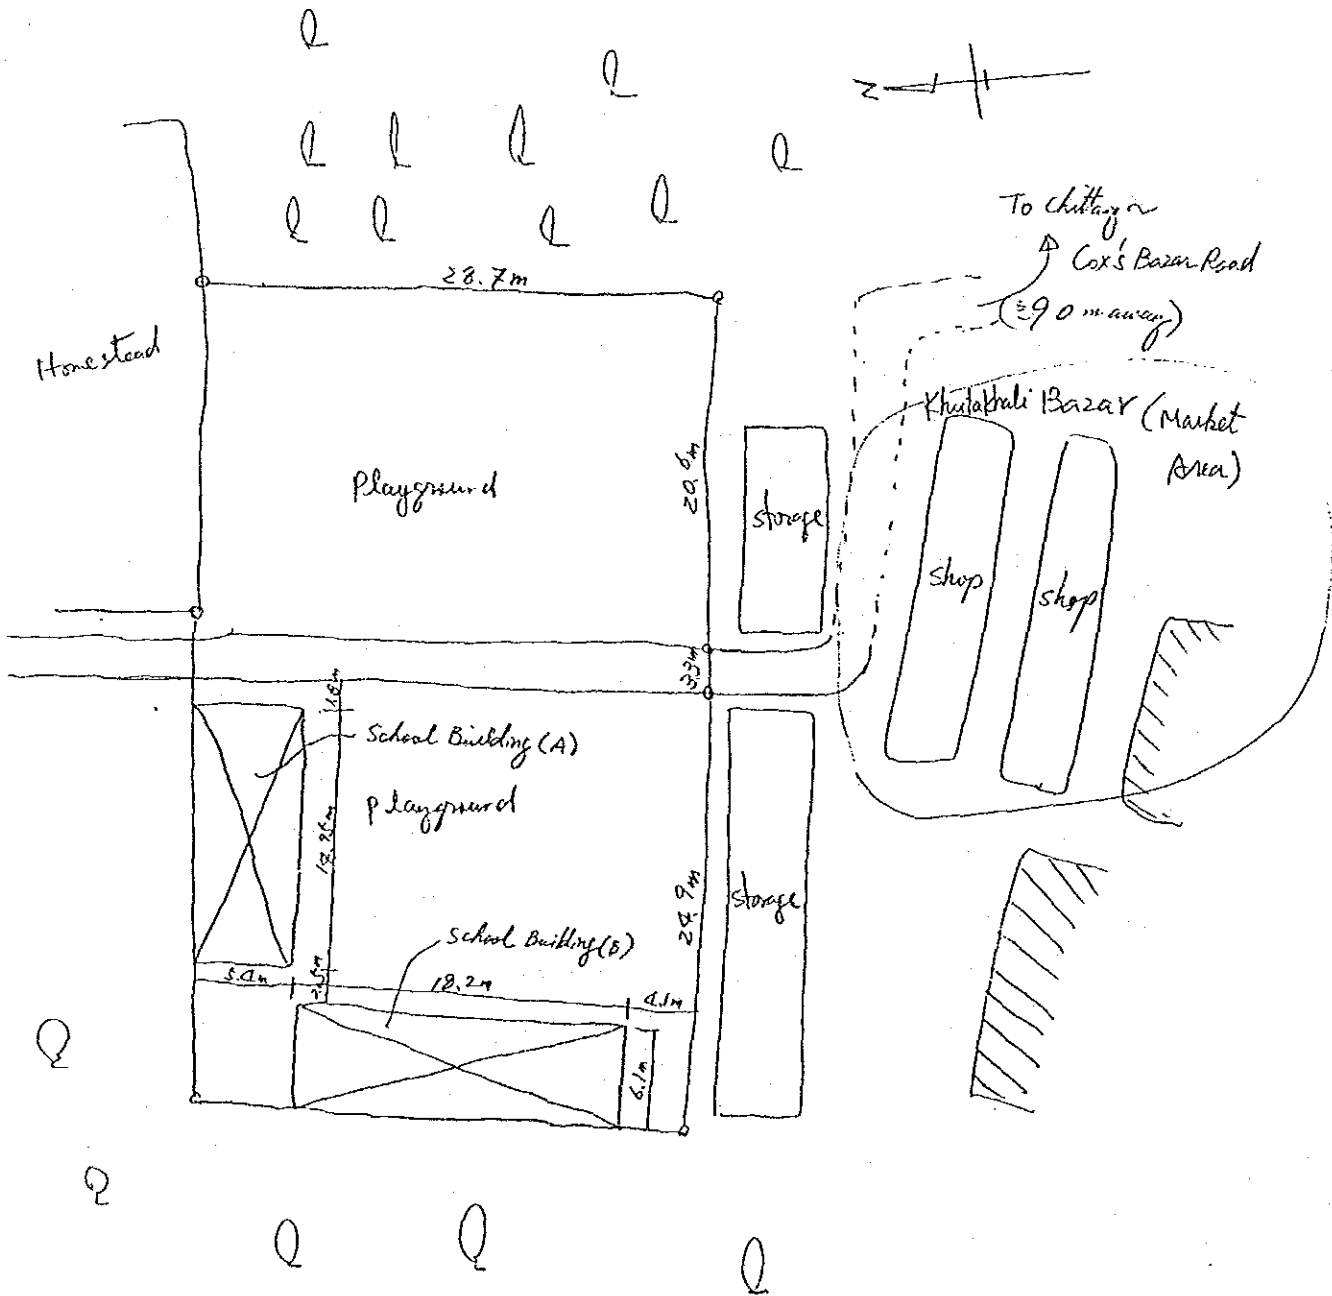 N
To Chittagon
Cox's Bazar Road
(≒90 m away)
28.7m
Homestead
Khutakhali Bazar (Market
Area)
Playground
20.6m
storage
shop
shop
3.3m
1.8m
School Building (A)
Playground
14.25m
24.9m
storage
School Building (B)
5.4m
2.5m
18.2m
4.1m
6.1m